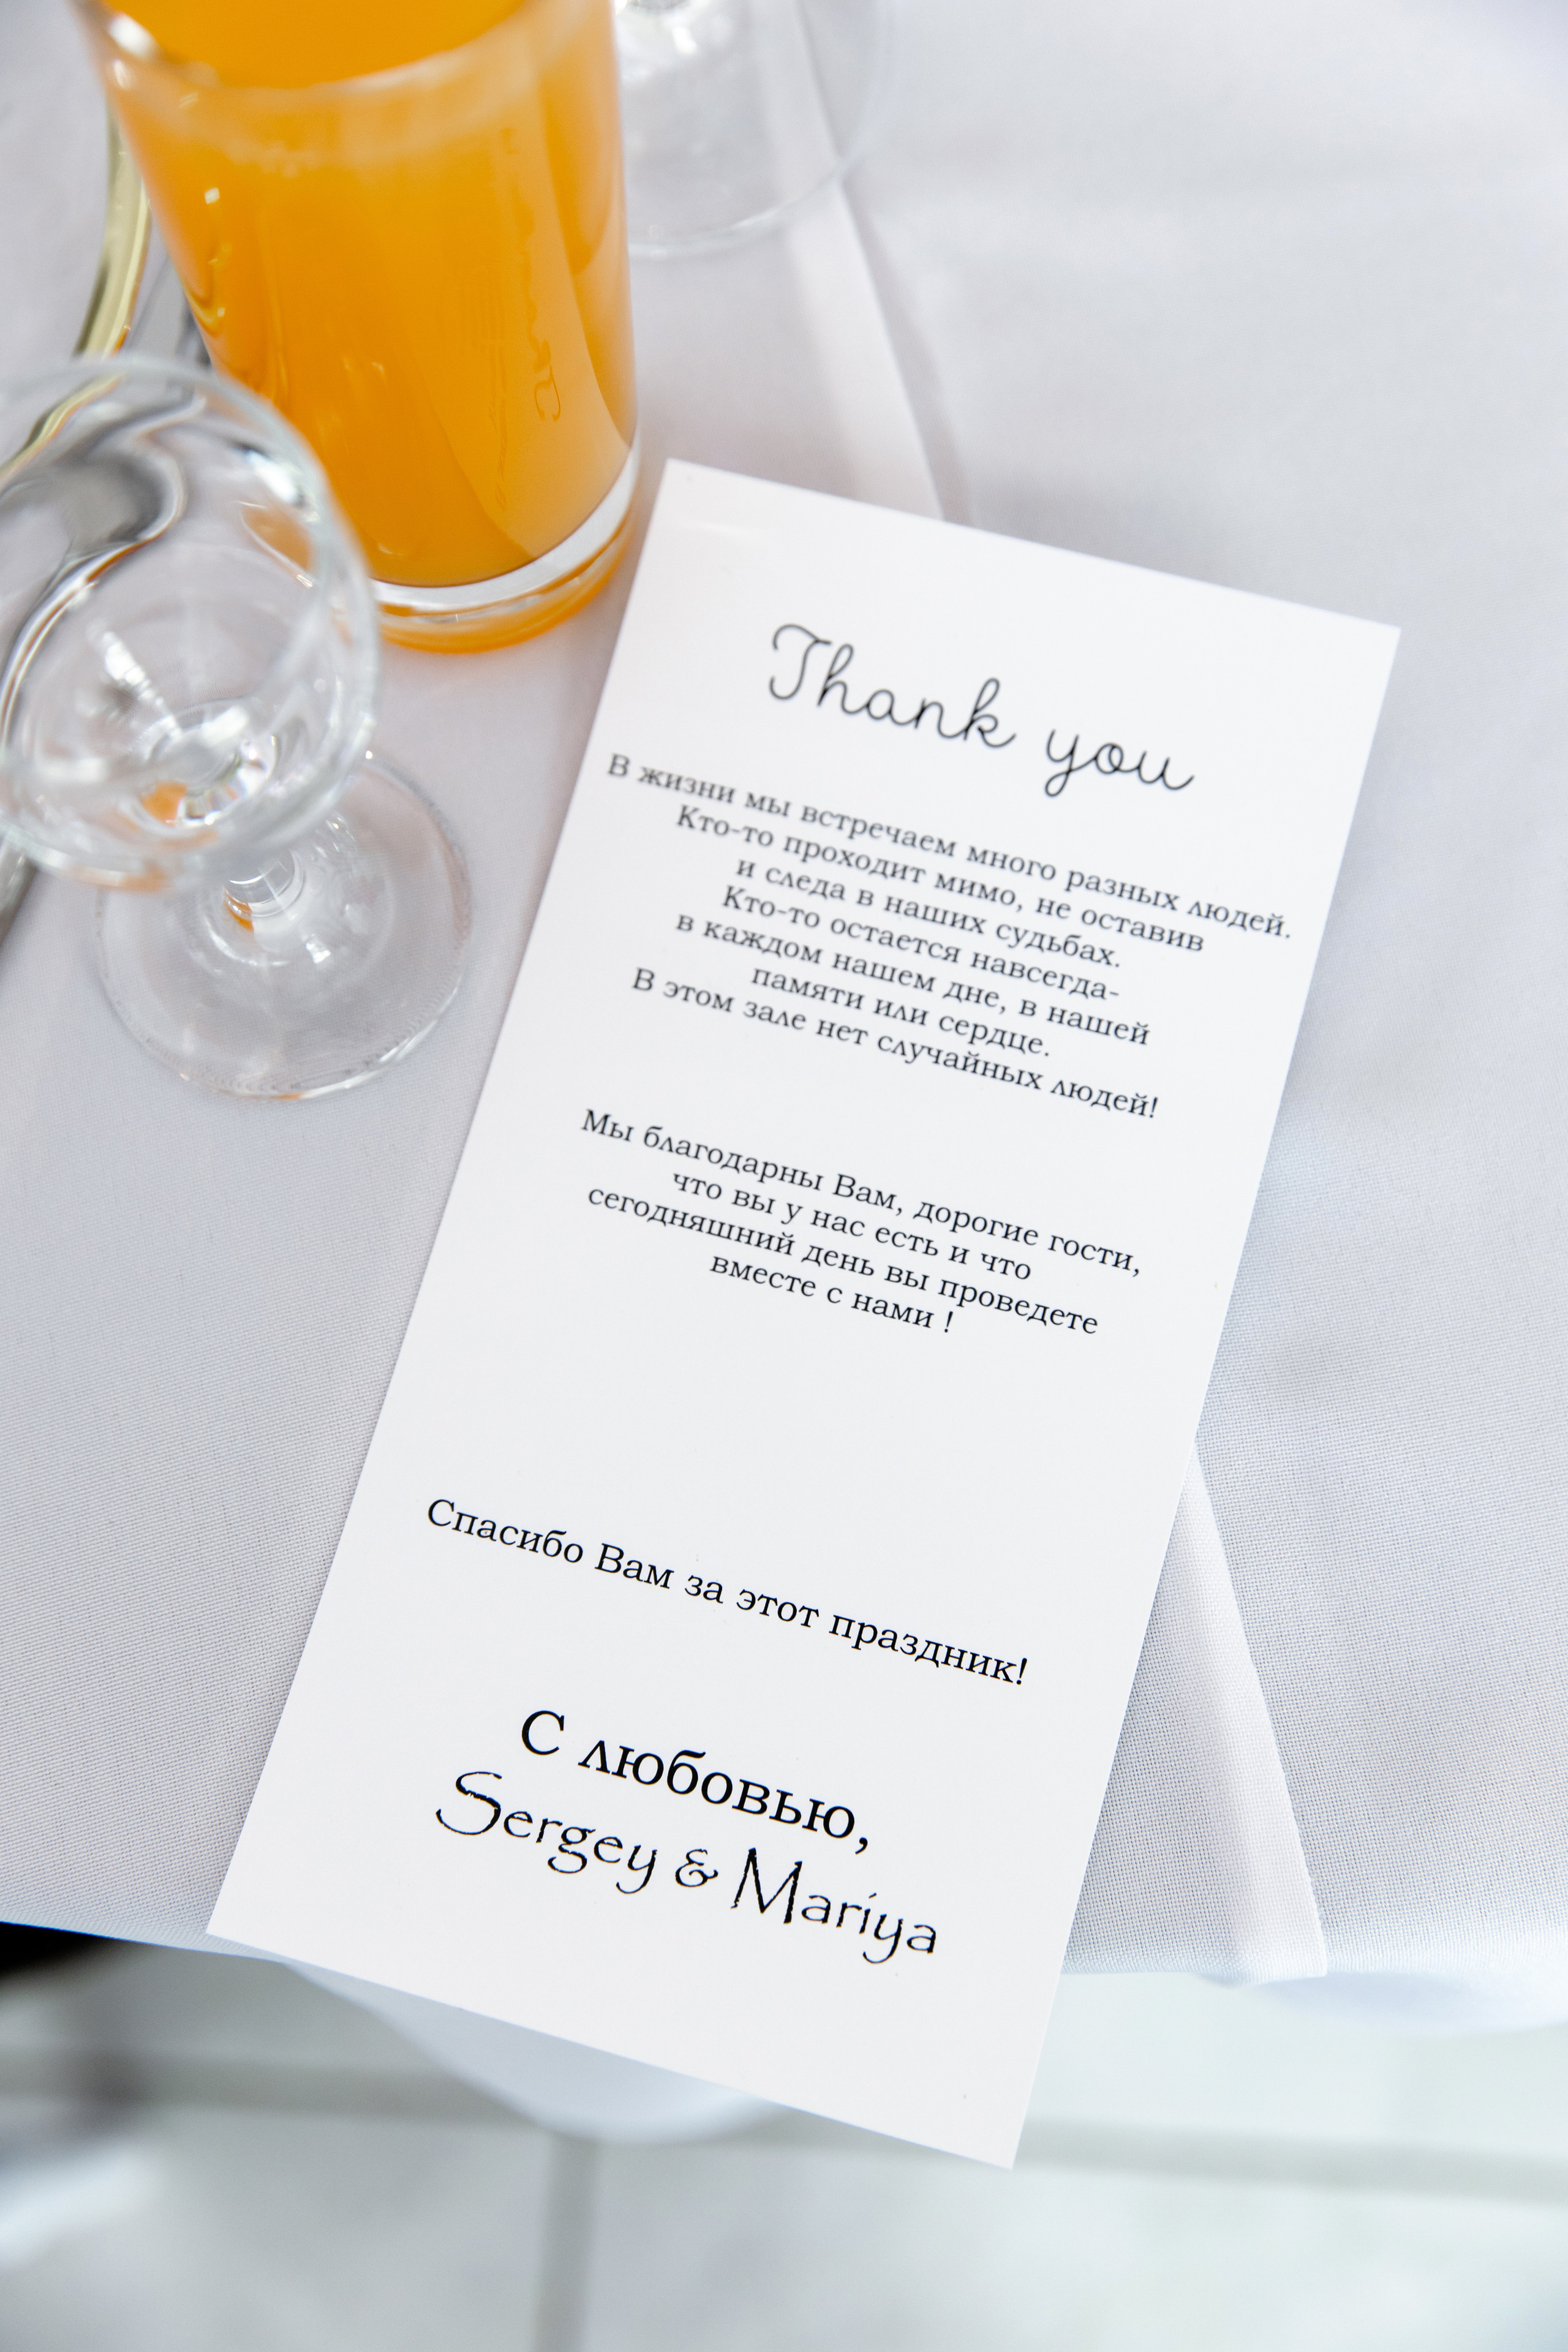 Thank you
В жизни мы встречаем много разных людей.
Кто-то проходит мимо, не оставив
и следа в наших судьбах.
Кто-то остается навсегда-
в каждом нашем дне, в нашей
памяти или сердце.
В этом зале нет случайных людей!
Мы благодарны Вам, дорогие гости,
что вы у нас есть и что
сегодняшний день вы проведете
вместе с нами !
Спасибо Вам за этот праздник!
С любовью,
Sergey & Mariya